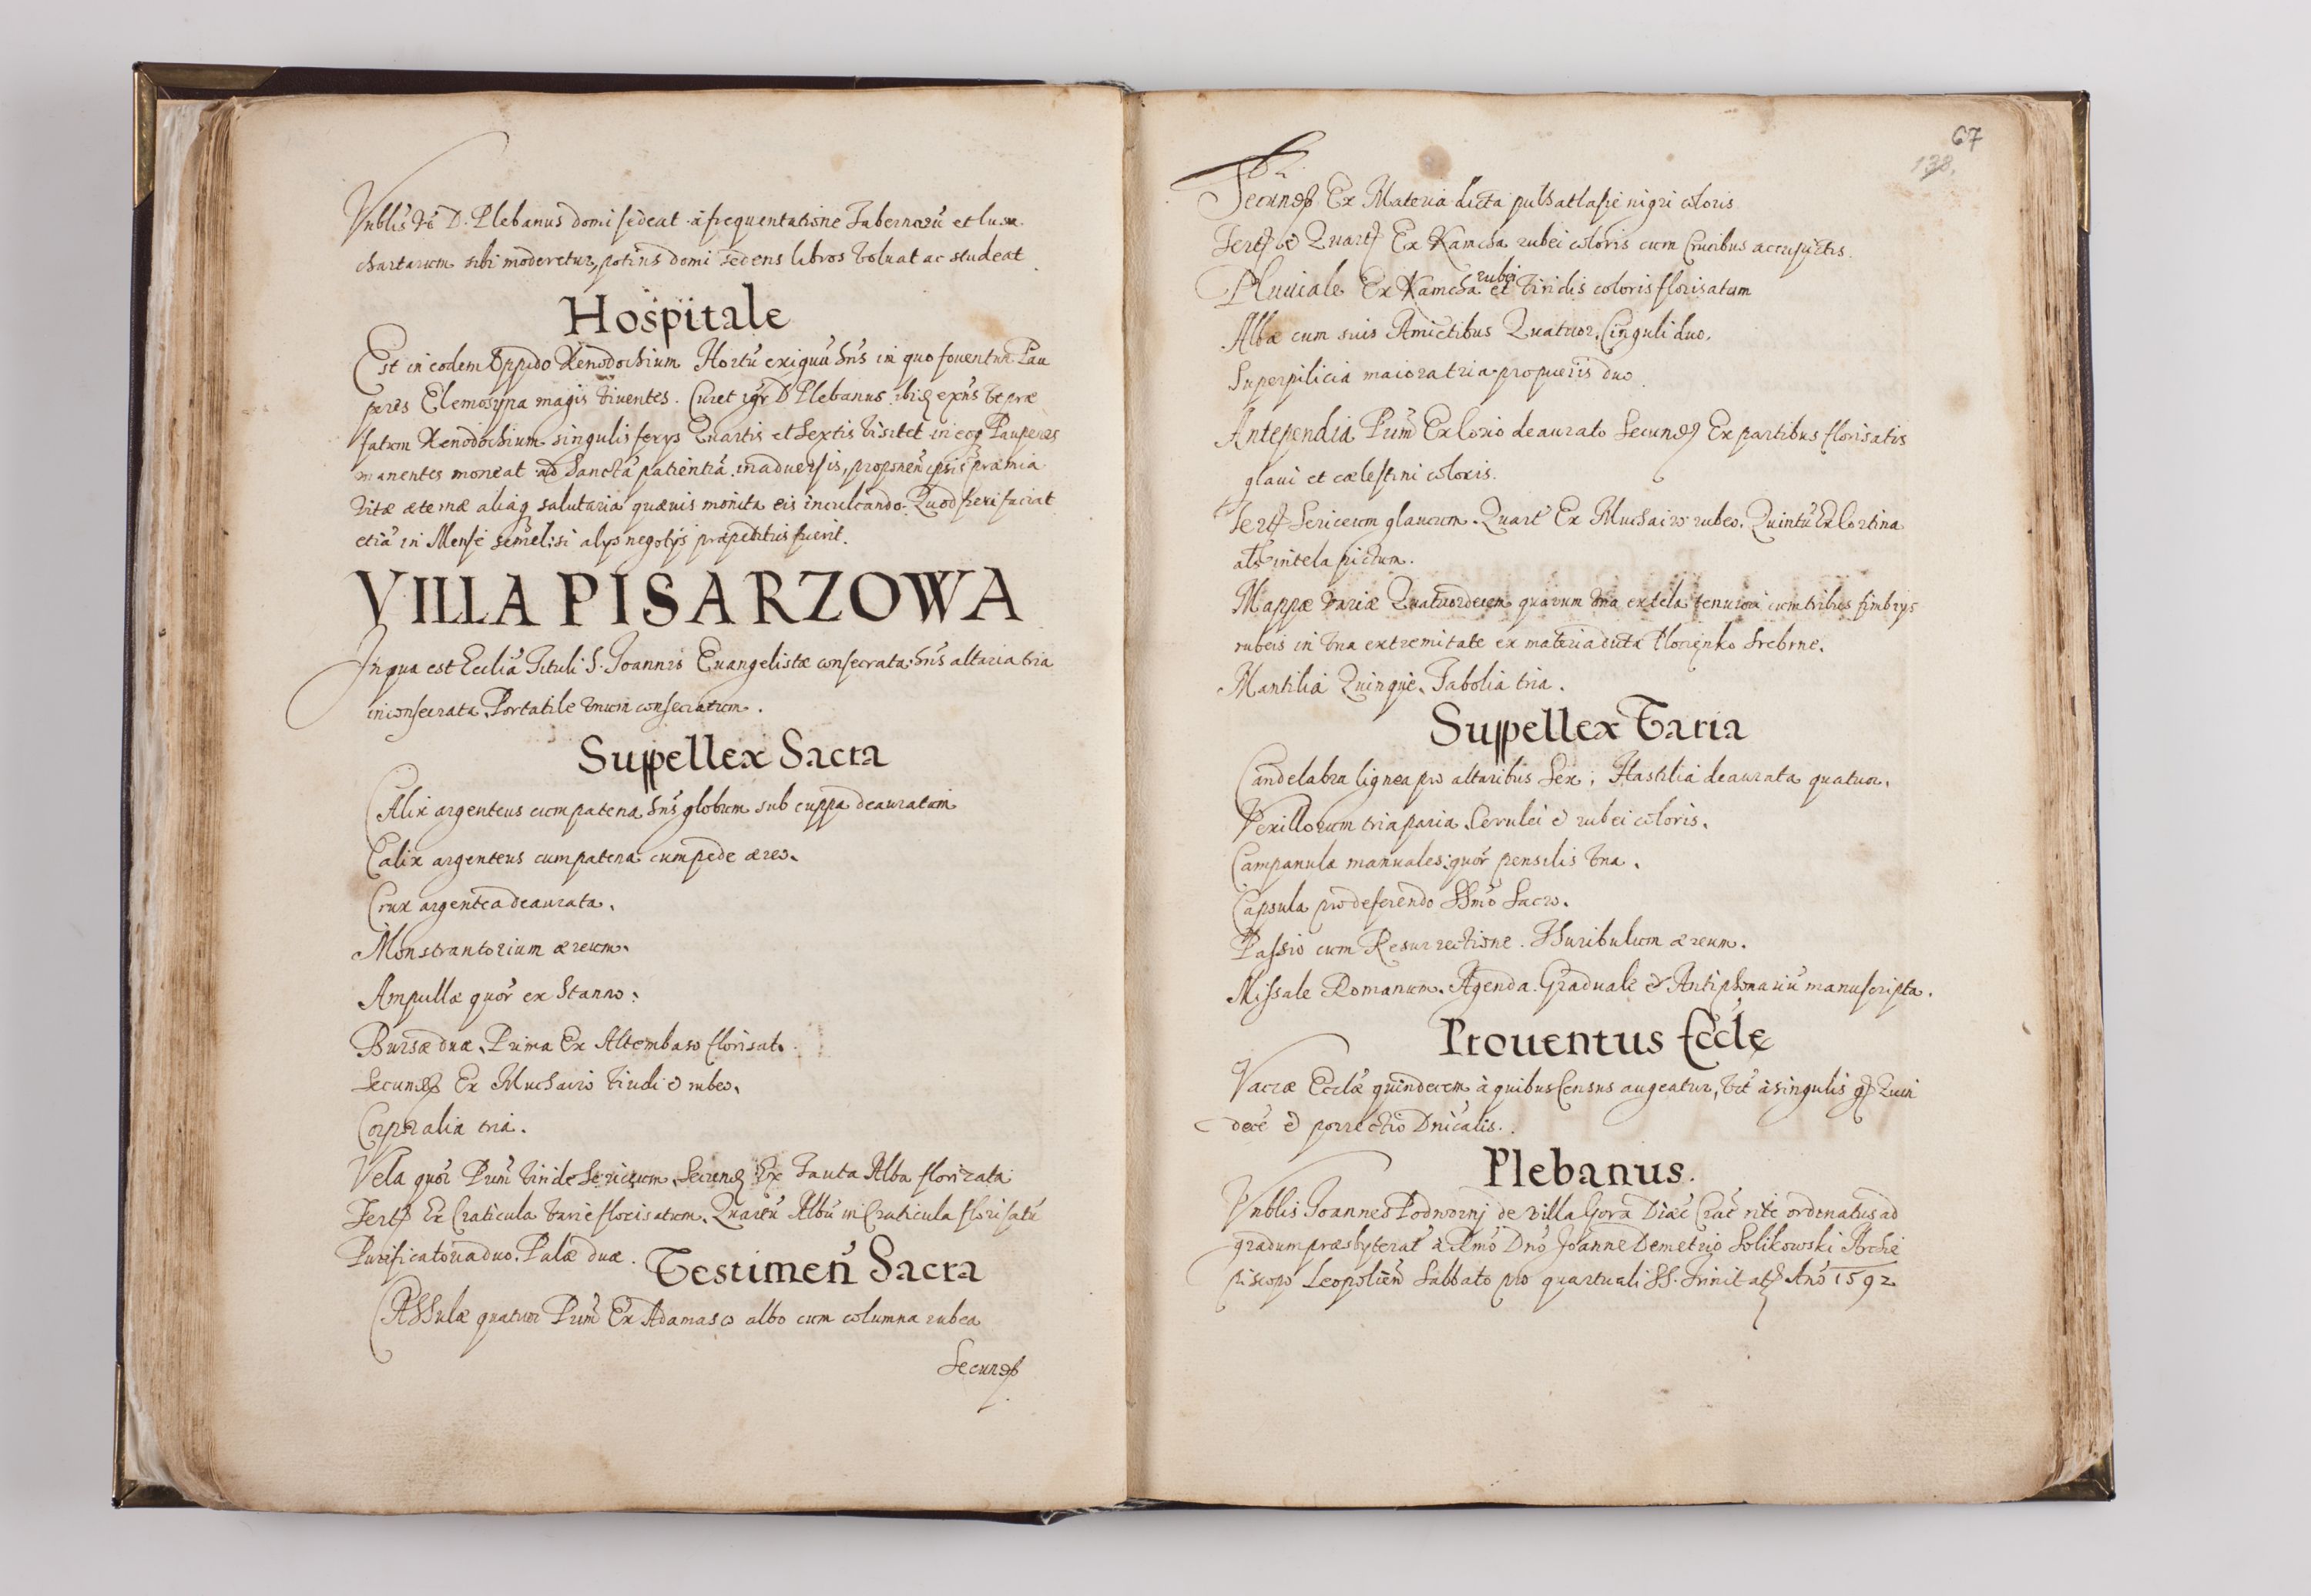 Vnblis vo D. Plebanus domi sedeat a frequentatione Tabernarū et lusu
chartarum sibi moderetur, potius domi sedens libros voluat ac studeat
Hospitale
Est in eodem Oppido Xenodochium Hortū exiguū hns in quo fouentur Pau
peres Elemosyna magis viuentes. Curet igr D Plebanus ibiq exns vt præ
fatum Xenodochium singulis ferys Quartis et Sextis visitet in eoq Pauperes
manentes moneat ad Sanctā patientiā in aduersis, proponen ipsis præmia
vitæ æternæ aliaq salutaria quæuis monita eis inculcando. Quod si exi faciat
etiā in Mense semel: si alys negotys præpeditus fuerit.
VILLA PISARZOWA
In qua est Eccliā Tituli S. Joannis Euangelistæ consecrata hns altaria tria
inconsecrata Portatile vnum consecratum.
Suppellex Sacra
Calix argenteus cum patena hns globum sub cuppa deauratum
Calix argenteus cum patena cum pede æreo.
Crux argentea deaurata.
Monstrantorium æreum.
Ampullæ quor ex Stanno:
Bursæ duæ. Prima Ex Altembaso florisato.
Secunda Ex Muchairo viridi & rubeo.
Corporalia tria.
Vela quor Prim viride Sericeum. Secund Ex Tauta Alba florizata
Tert Ex Craticula varie florisatum. Quartū Albū in Craticula florisatū
Purificatoria duo. Palæ duæ.
Vestimen Sacra
Casulæ quatuor Prim Ex Adamasco albo cum columna rubea
Secund
67
138.
Secund Ex Materia dicta pulsatlasie nigri coloris
Tert & Quart Ex Kamcha rubei coloris cum Crucibus accupictis.
Pluuiale Ex Kamcha rubei et viridis coloris florisatum
Albæ cum suis Amictibus Quatuor. Cinguli duo.
Superpilicia maiora tria pro pueris duo.
Antependia Prim Ex Corio deaurato Secund Ex partibus florisatis
glaui et cælestini coloris.
Tert Sericeum glaucum. Quart Ex Muchairo rubeo. Quintū Ex Cortina
als in tela pictum.
Mappæ variæ Quatuordecem quarum vna ex tela tenuiori cum tribus fimbrys
rubeis in vna extremitate ex materia dicta Plocienko Srebrne.
Mantilia Quinque. Tabolia tria.
Suppellex Varia
Candelabra lignea pro altaribus Sex; Hastilia deaurata quatuor.
Vexillorum tria paria. Cerulei & rubei coloris.
Campanulæ manuales quor pensilis vna.
Capsula pro deferendo SSmo Sacro.
Passio cum Resurrectione. Thuribulum æreum.
Missale Romanum. Agenda. Graduale & Antiphonariū manuscripta.
Prouentus Eccle
Vaccæ Ecclæ quindecem à quibus Census augeatur, vt à singulis gr Quin
decē & porrectio Dnicalis.
Plebanus.
Vnblis Joannes Podwornj de villa Gora Diæc Crac rite ordinatus ad
gradum præsbyterat à Rmo Dno Joanne Demetrio Solikowski Archi
piscopo Leopolien Sabbato pro quartuali SS. Trinitat Anō 1592